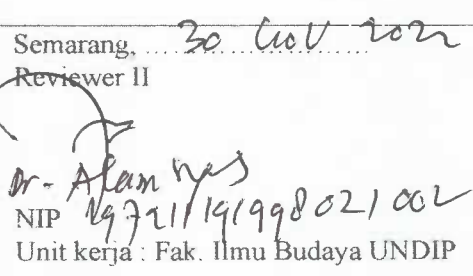 Semarang, 30 Nov 2022
Reviewer II
Dr. Alamsyah
NIP 197211191998021002
Unit kerja : Fak. Ilmu Budaya UNDIP